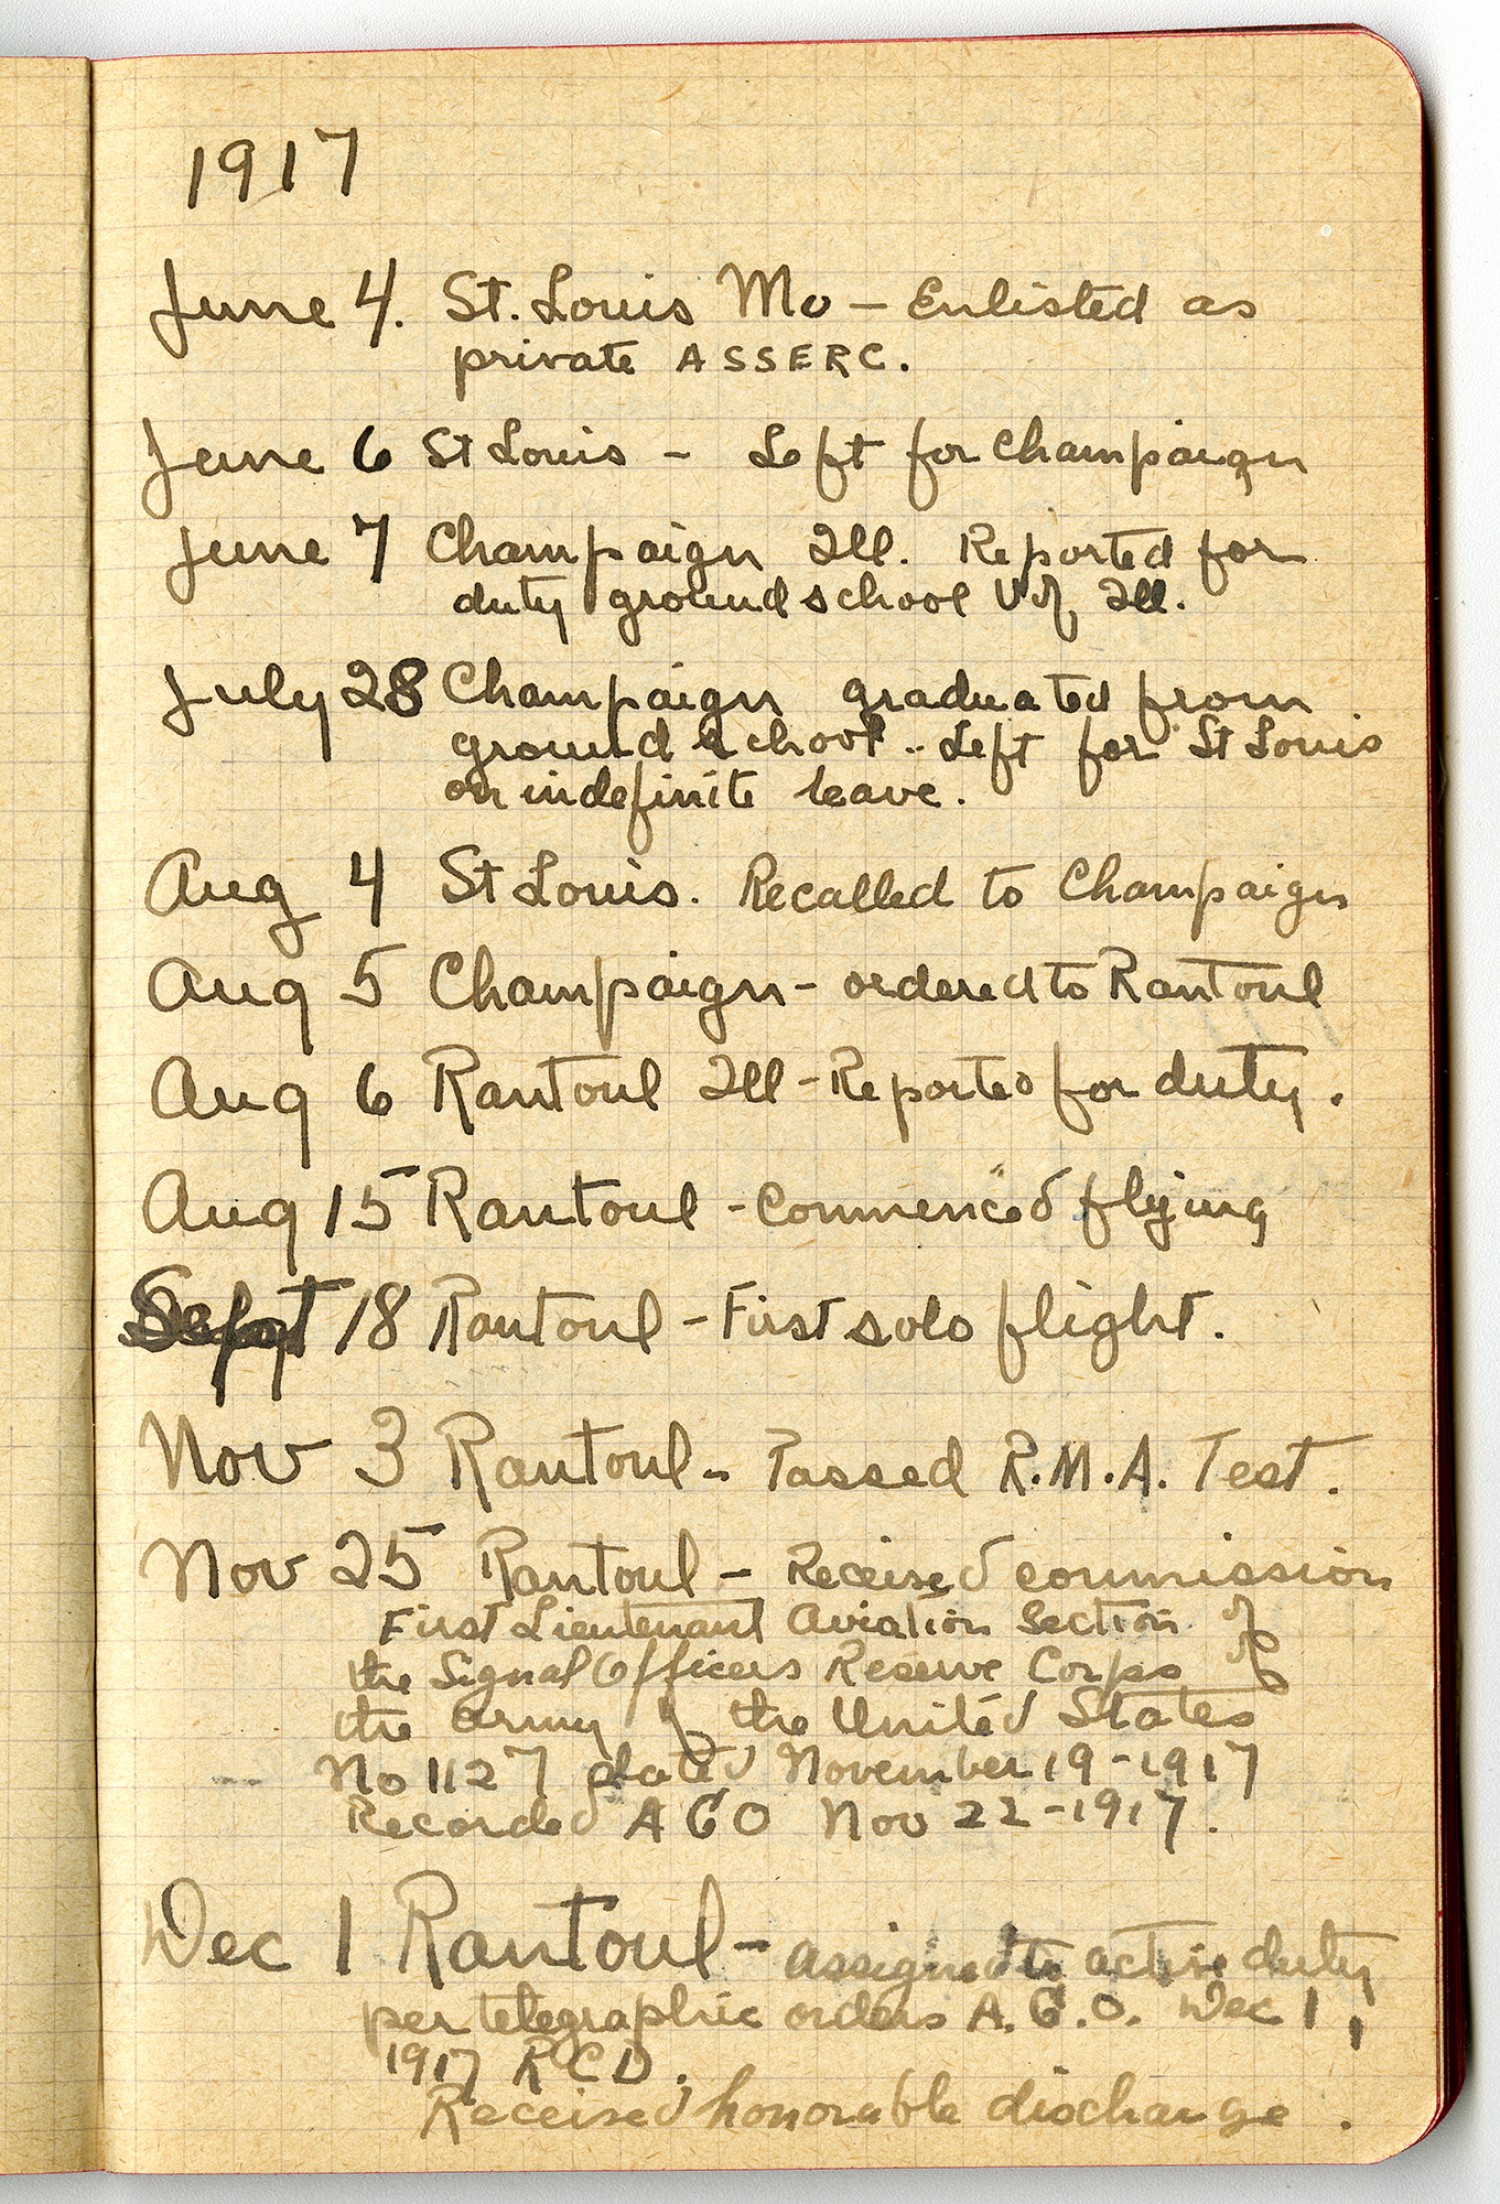 1917
June 4. St. Louis Mo — Enlisted as
private ASSERC.
June 6 St Louis - Left for Champaign
June 7 Champaign Ill. Reported for
duty ground school U of Ill.
July 28 Champaign graduated from
ground school.. Left for St Louis
on indefinite leave.
Aug 4 St Louis. Recalled to Champaign
Aug 5 Champaign - ordered to Rantoul
Aug 6 Rantoul Ill - Reported for duty.
Aug 15 Rantoul - Commenced flying
Sept 18 Rantoul - First solo flight.
Nov 3 Rantoul - Passed R.M.A. Test.
Nov 25 Rantoul - Received commission
First Lieutenant Aviation Section of
the Signal Officers Reserve Corps of
the Army of the United States
No 1127 dated November 19-1917
Recorded AGO Nov 22-1917.
Dec 1 Rantoul - assigned to active duty
per telegraphic orders A.G.O. Dec 1,
1917 RCD.
Received honorable discharge.